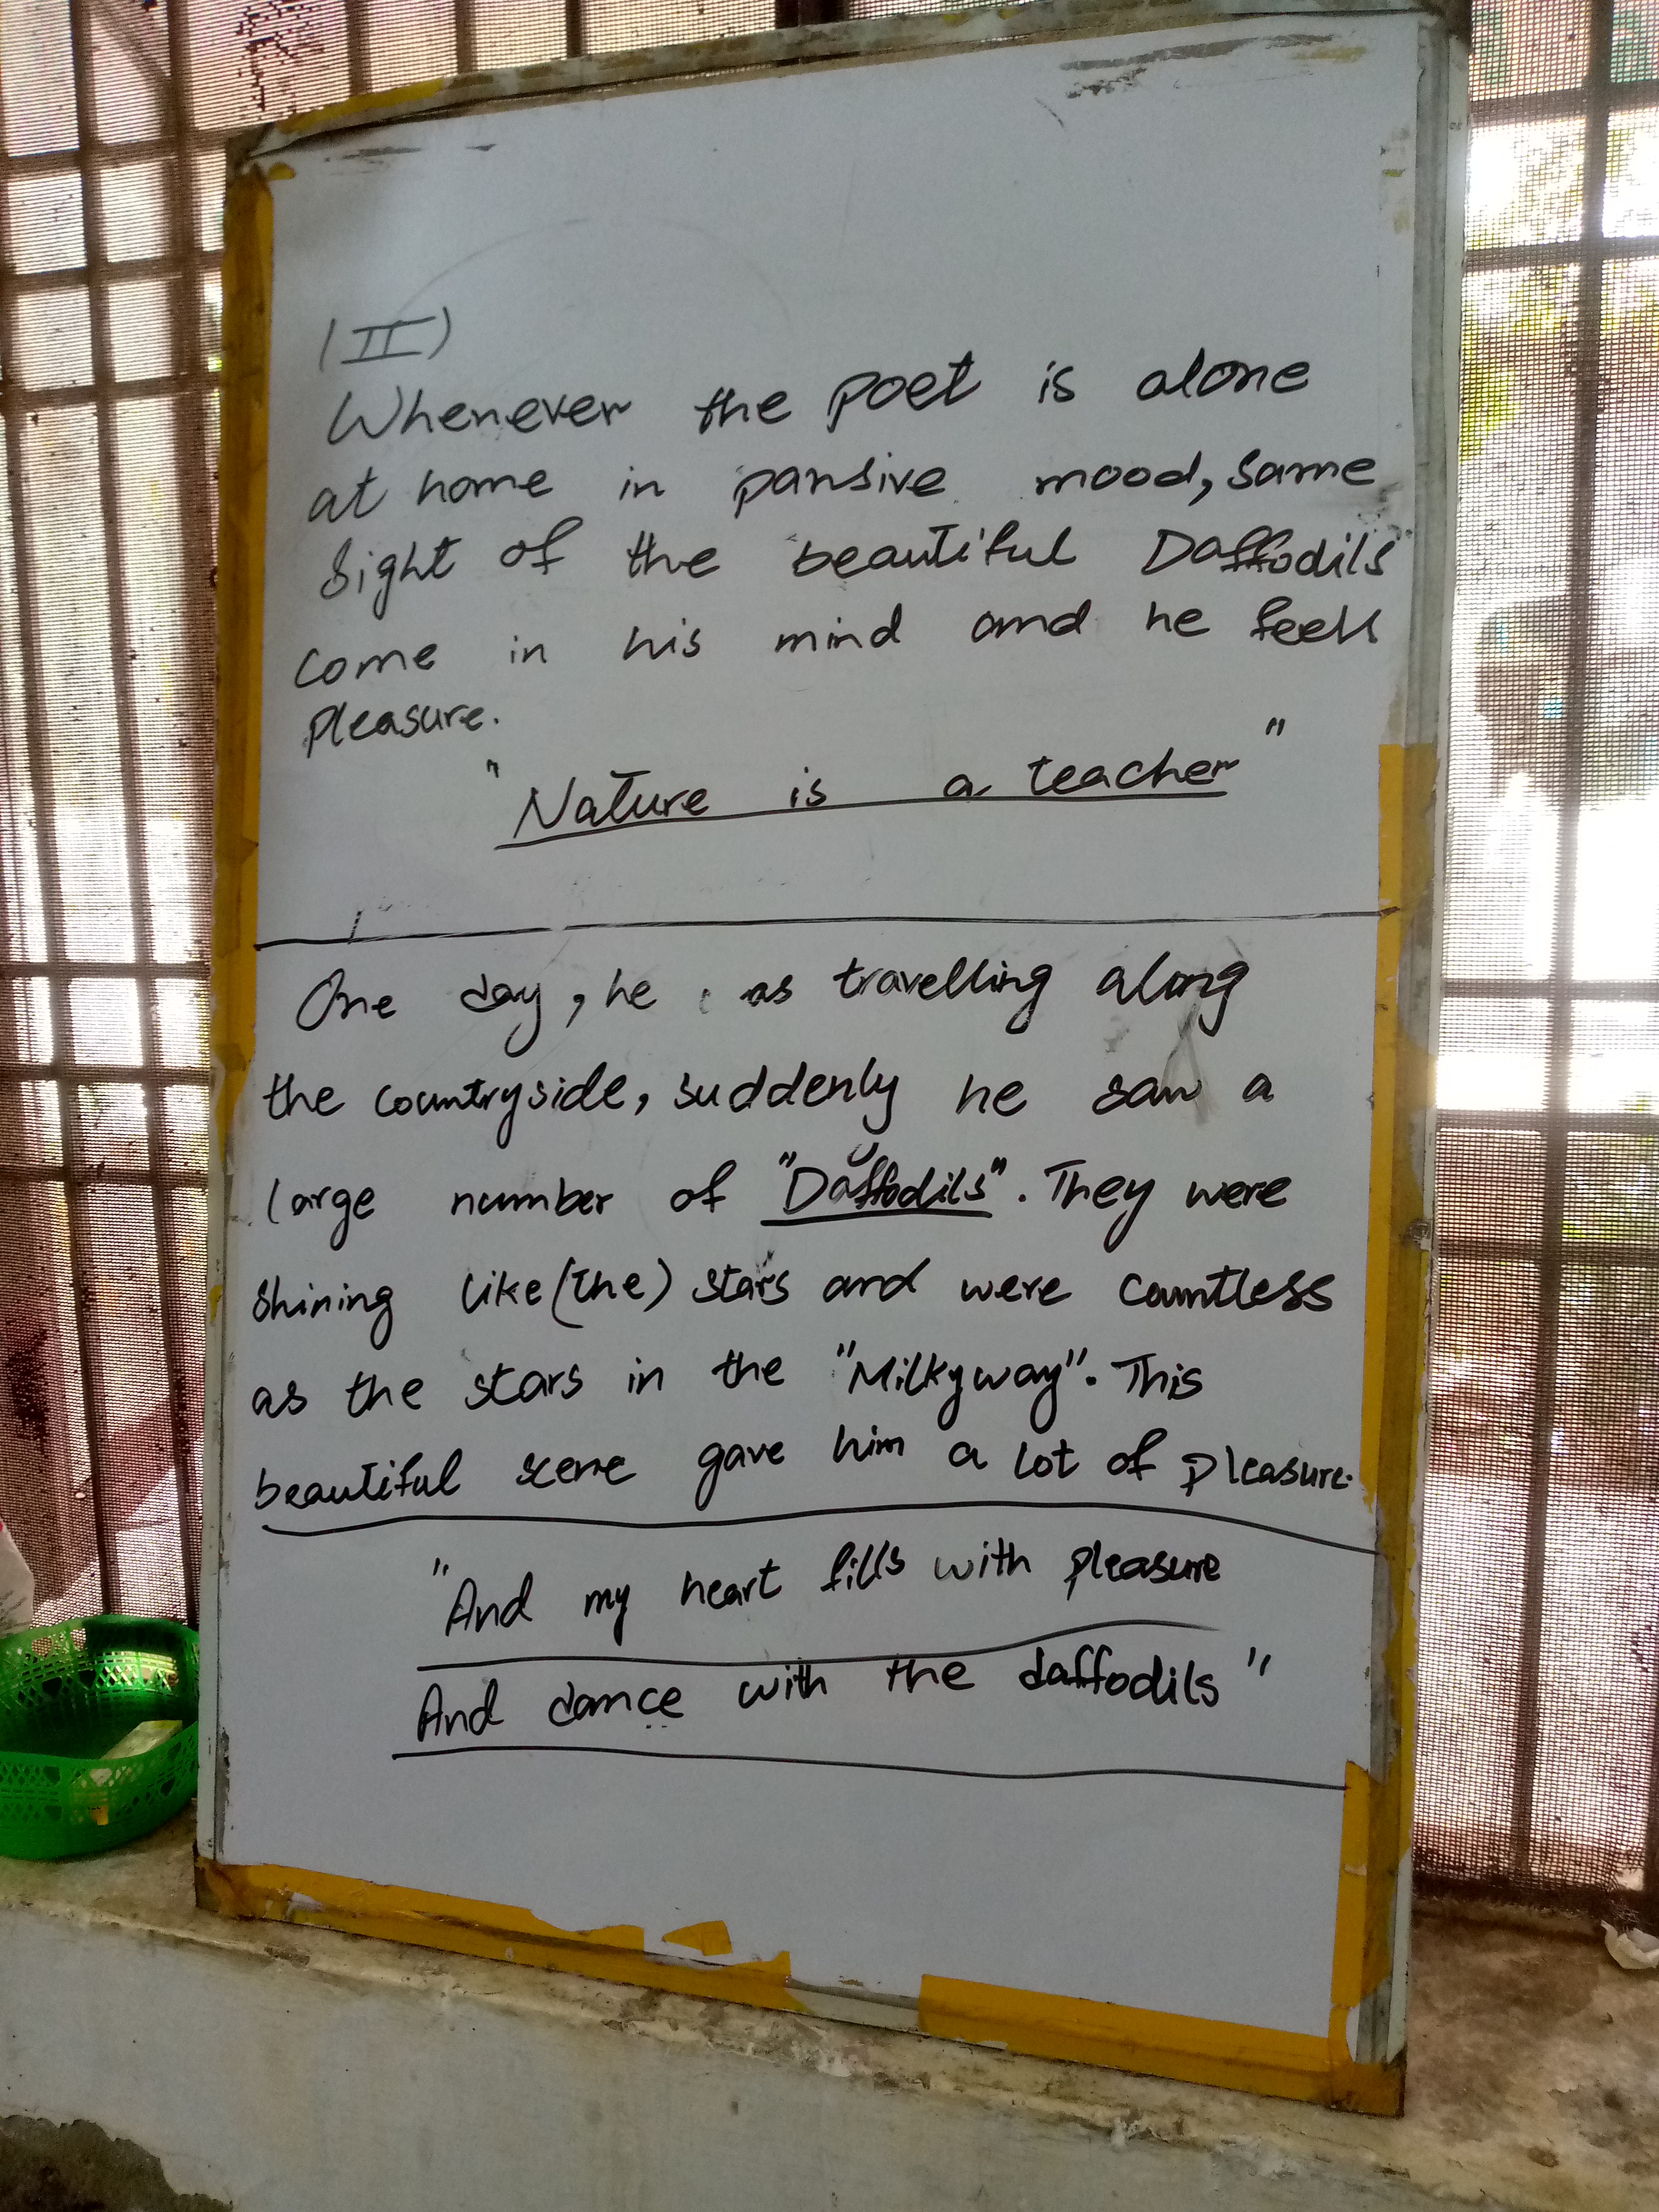 (II)
Whenever the poet is alone
at home in pansive mood, same
sight of the beautiful Daffodils
come in his mind and he feels
pleasure.
"Nature is a teacher"
One day, he as travelling along
the countryside, suddenly he saw a
large number of "Daffodils". They were
shining like (the) stars and were countless
as the stars in the "Milkyway". This
beautiful scene gave him a lot of pleasure.
"And my heart fills with pleasure
And dance with the daffodils"